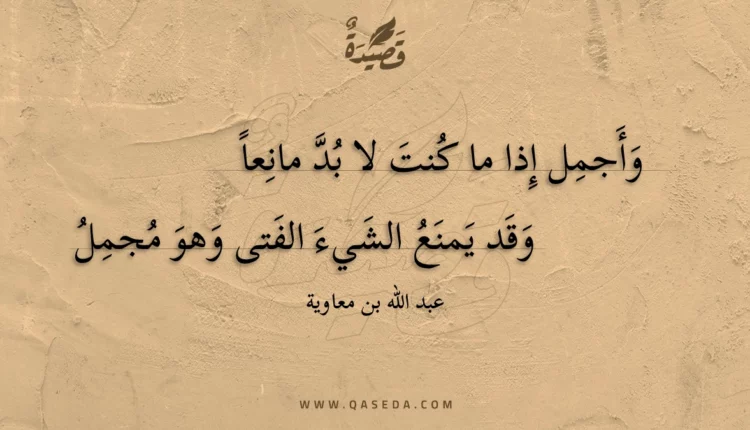 قَصِيدَةٌ
وَأَجمِل إِذا ما كُنتَ لا بُدَّ مانِعاً
وَقَد يَمنَعُ الشَيءَ الفَتى وَهوَ مُجمِلُ
عبد الله بن معاوية
WWW.QASEDA.COM